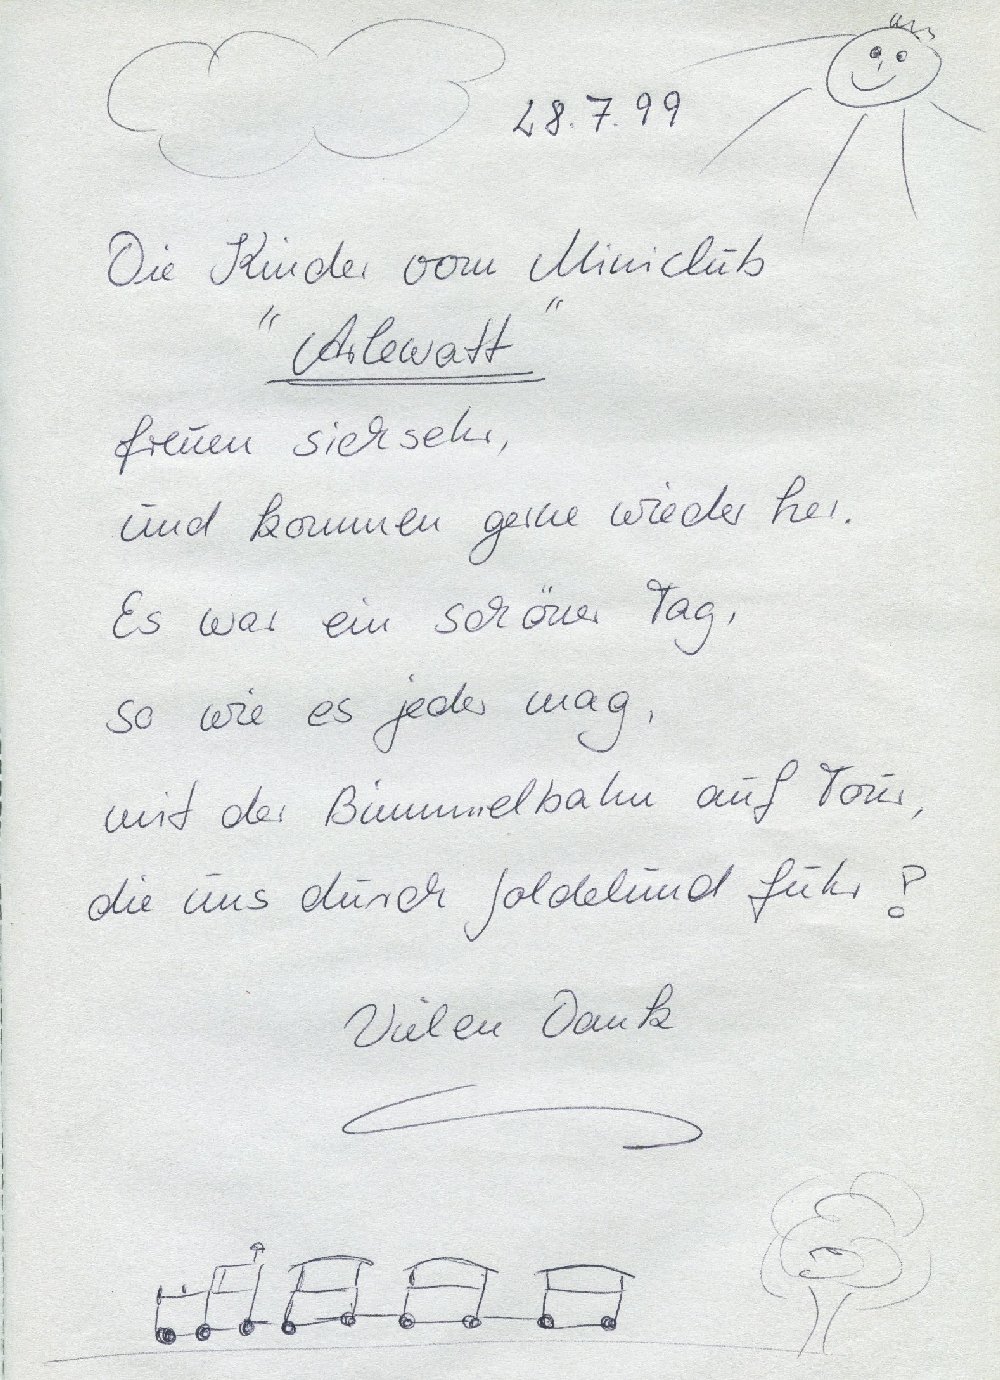 28.7.99
Die Kinder vom Miniclub
"Arlewatt"
freuen sich sehr,
und kommen gerne wieder her.
Es war ein schöner Tag,
so wie es jeder mag,
mit der Bimmelbahn auf Tour,
die uns durch Joldelund fuhr!
Vielen Dank